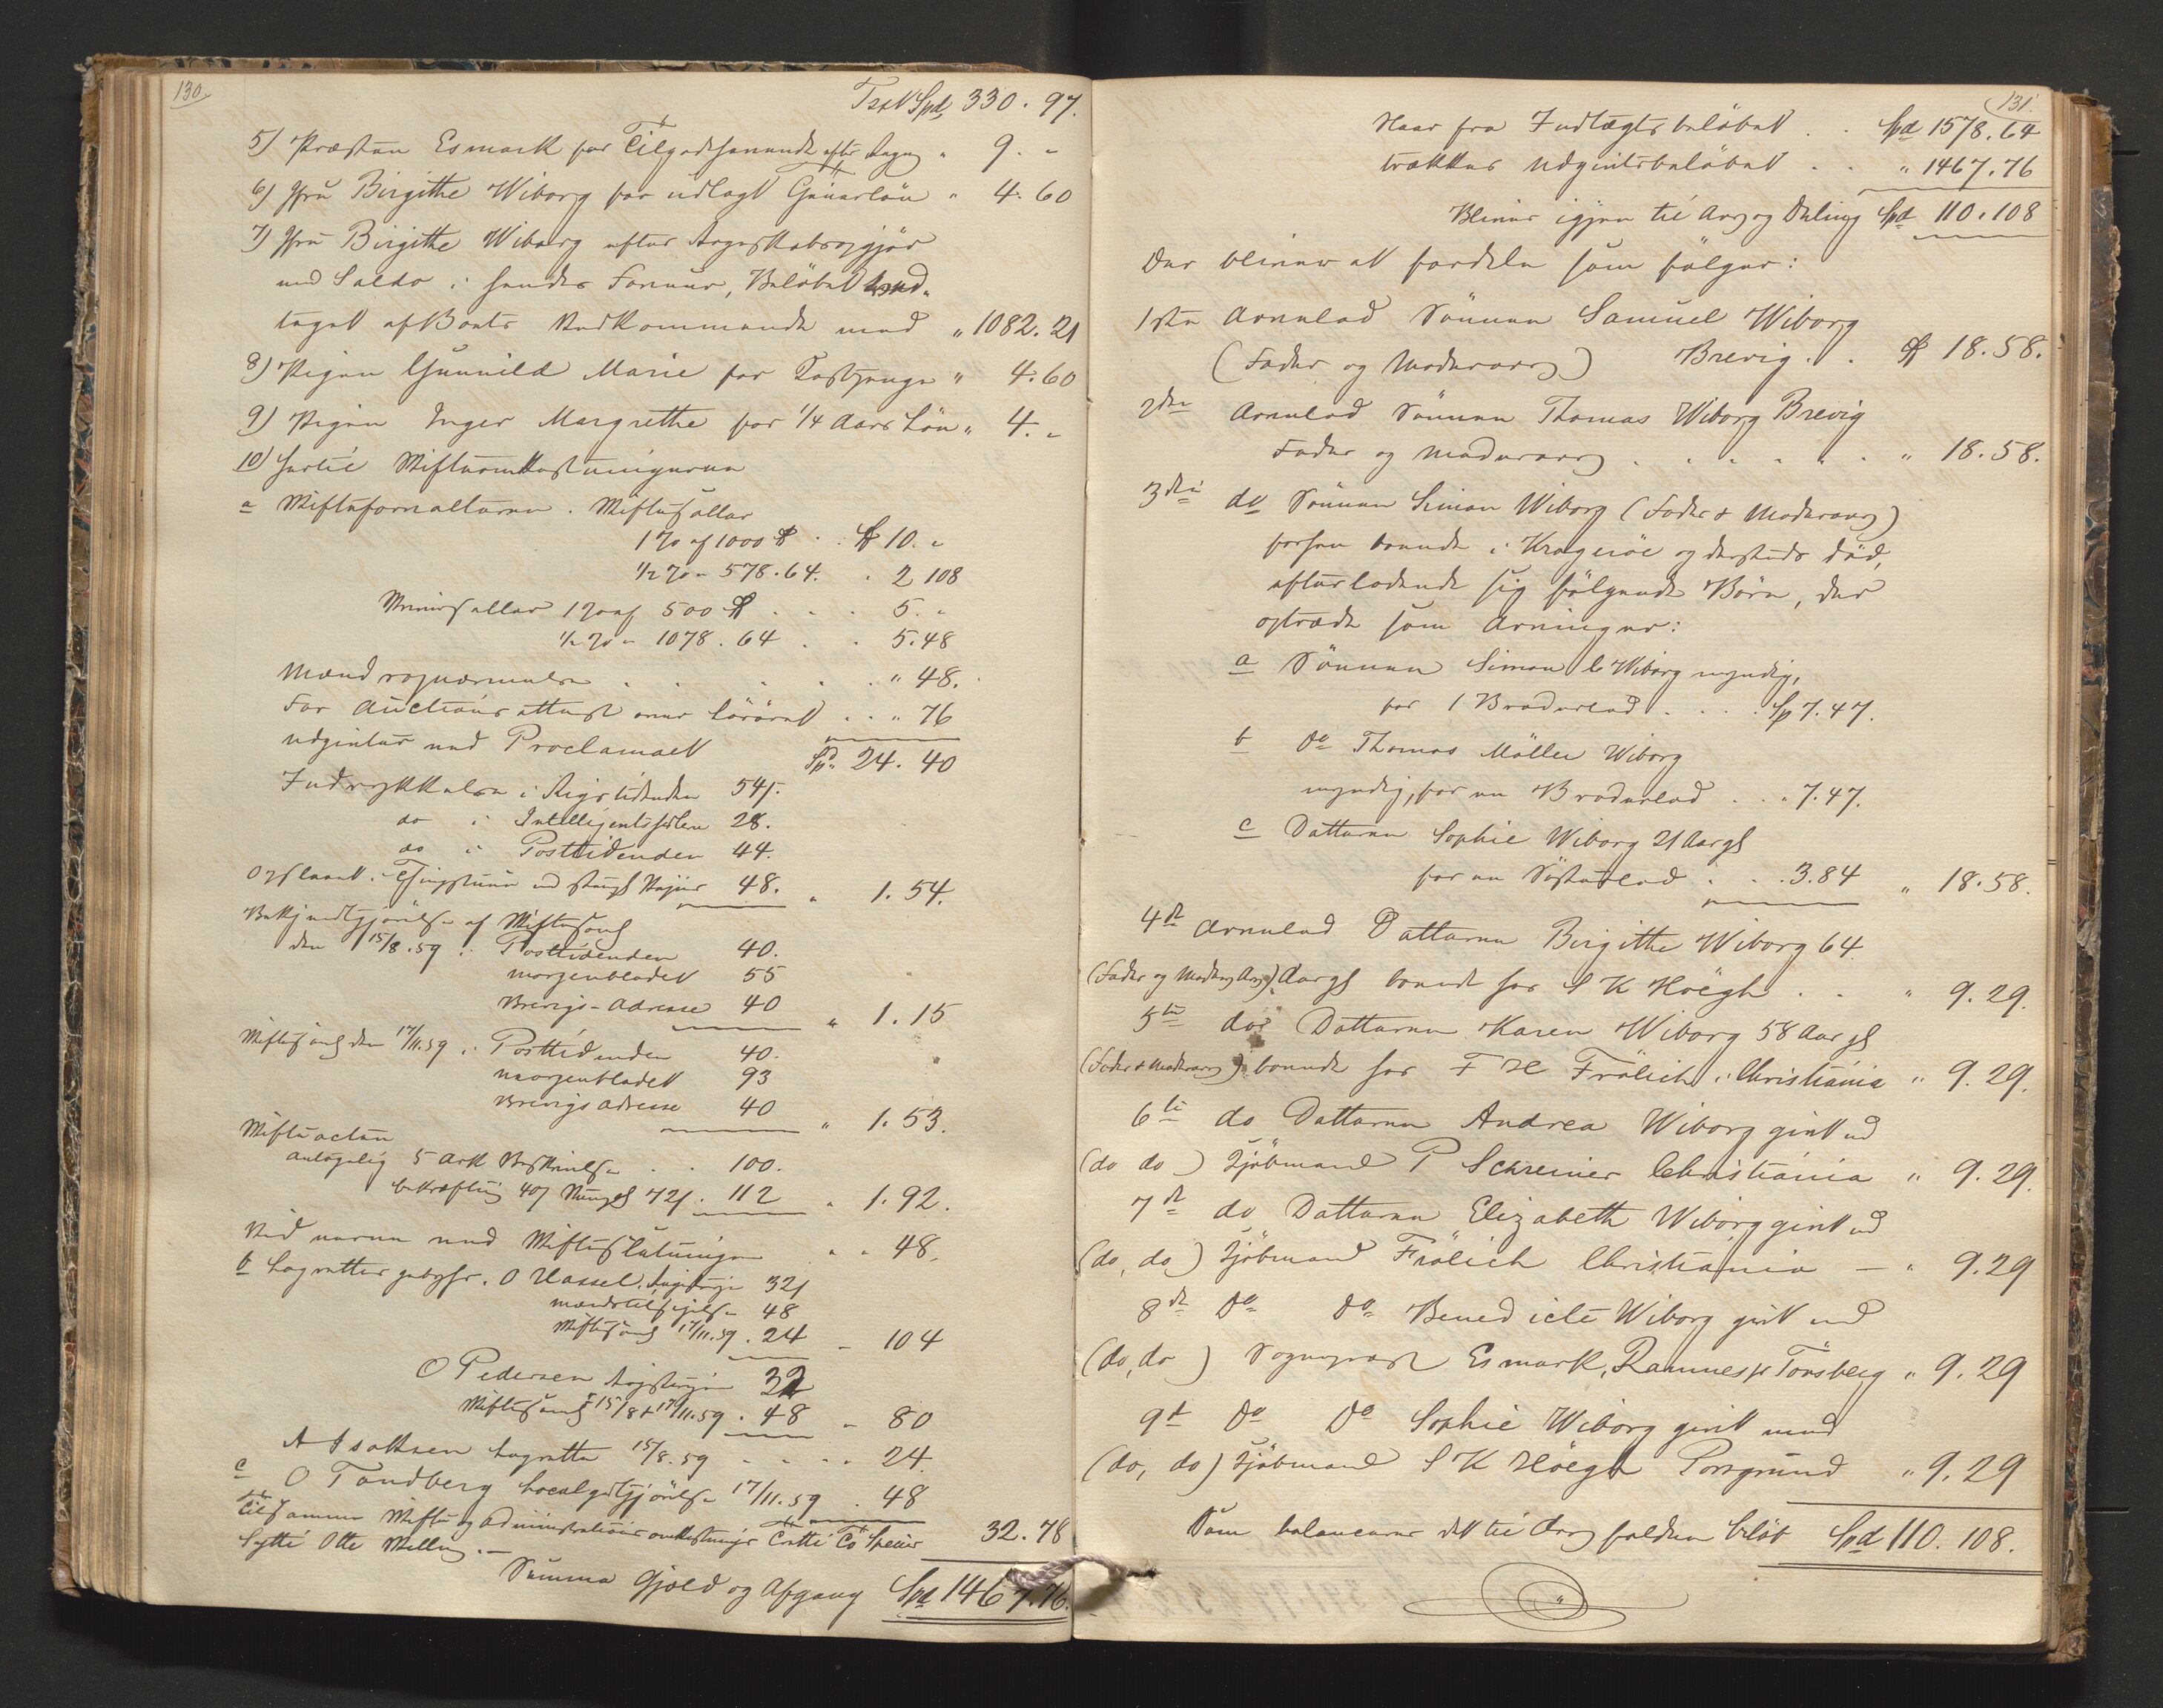 130.
Trsp Spd 330. 97.
5) Præsten Esmark for Tilgodehavende efter Regng " 9. "
6) Jfru Birgithe Wiborg for udlagt Gaverløn " 4. 60
7) Jfru Birgithe Wiborg efter Regnskabsopgjør
med Saldo i hendes Faveur, Beløbet
taget af Boets Vedkommende med " 1082. 21
8) Pigen Gunnild Marie for Kostpenge " 4. 60
9) Pigen Inger Margrethe for 1/4 Aars Løn " 4. "
10) Hertil Skifteomkostningerne
a Skifteforvalteren. Skiftesallar
1 % af 1000 Spd . . Spd 10. "
1/2 % " 578. 64. . 2 108
Skriversallar 1 % af 500 Spd . . . 5. "
1/2 % " 1078. 64 . . 5. 48
Mænds opnævnelse . . . . . " 48.
For Auctionsattest over Løsøret . . " 76
Udgifter med Proclamaet Spd 24. 40
Indrykkelse i Rigstidenden 54.
do i Intelligentssedlerne 28.
do i Posttidenden 44.
Opslaaet i Thingstuen ved stempl Papiir 48. " 1. 54.
Bekjendtgjørelse af Skiftesaml
den 15/8. 59 i Posttidenden 40.
Morgenbladet 55
Brevigs-Adresse 40 " 1. 15
Skiftesaml den 17/11. 59 i Posttidenden 40.
Morgenbladet 93
Brevigs Adresse 40 " 1. 53.
Skifteacten
antagelig 5 Ark Beskrivelse . . 100.
bekræftig 40 / Stempl 72 /. 112 " 1. 92.
Ved varsn med Skifteslutningen " " 48.
b Lagrettes gebyhr. O Hassel, 32 /
mandstilsigelse 48
Skiftesaml 17/11. 59 . 24 " 104
O Pedersen 32
Skiftesaml 15/8 & 17/11. 59 . 48 " 80
A Isaksen Lagrette 15/8. 59 . . . . 24.
c O Tandberg 17/11. 59 . 48
Tilsammen Skifte og Administrations omkostninger Tretti To Specier 32. 78
Sytti Otte Skilling. —
Summa Gjæld og Afgang Spd 1467. 76.
131.
Naar fra Indtægts beløbet . . Spd 1578. 64
trækkes Udgiftsbeløbet . . " 1467. 76
Bliver igjen til Arv og Deling Spd 110. 108
Der bliver at fordele som følger:
1ste Arvelod Sønnen Samuel Wiborg
(Fader og Moderarv) Brevig . . Spd 18. 58.
2den Arvelod Sønnen Thomas Wiborg Brevig
Fader og Moderarv . . . . . . " 18. 58.
3die do Sønnen Simon Wiborg (Fader & Moderarv)
forhen boende i Kragerøe og dersteds død,
efterladende sig følgende Børn, der
optræde som Arvinger:
a Sønnen Simon C Wiborg myndig,
for 1 Broderlod . . . . Sp 7. 47.
b do Thomas Møller Wiborg
myndig, for en Broderlod . . " 7. 47.
c Datteren Sophie Wiborg 21 Aar gl
for en Søsterlod . . . 3. 84 " 18. 58.
4de Arvelod Datteren Birgithe Wiborg 64
(Fader og Moders Arv) Aar gl boende hos S K Høegh . . " 9. 29.
5te do Datteren Karen Wiborg 58 Aar gl
(Fader & Moderarv) boende hos F H Frølich i Christiania " 9. 29.
6te do Datteren Andrea Wiborg givt ud
(do do) Kjøbmand P Schreiner Christiania " 9. 29.
7de do Datteren Elizabeth Wiborg givt ud
(do, do) Kjøbmand Frølich Christiania — " 9. 29
8de do do Benedicte Wiborg givt med
(do, do) Sognepræst Esmark, Ramnes pr Tønsberg " 9. 29
9de do do Sophie Wiborg givt med
(do, do) Kjøbmand S K Høegh Porsgrund " 9. 29
Som balancerer det til Arv faldne beløb Spd 110. 108.